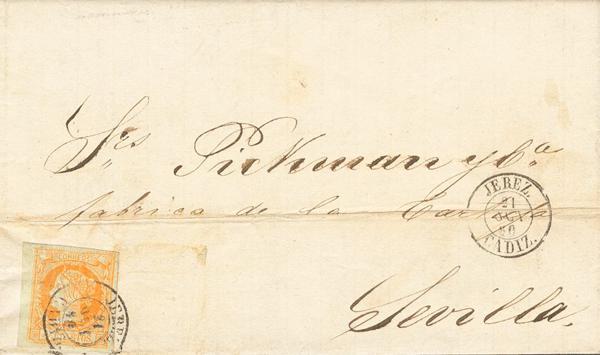 Sres Pickman y Cª
fabrica de la Cartuja
Sevilla.
JEREZ.
21
OCT
60
CADIZ.
CORREOS